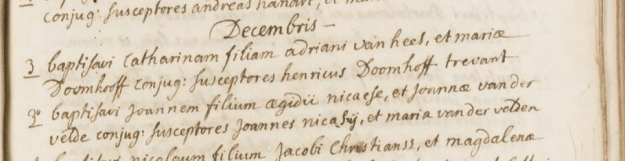 conjug: susceptores andreas
Decembris
3 baptisavi Catharinam filiam adriani van hees, et mariæ
Doomhoff conjug: susceptores henricus Doomhoff. trevant
2º baptisavi joannem filium ægidii nicaese, et joannæ vander
velde conjug: susceptores joannes nicasij, et maria vander velden
nicolaum filium jacobi Christiansz, et magdalenæ